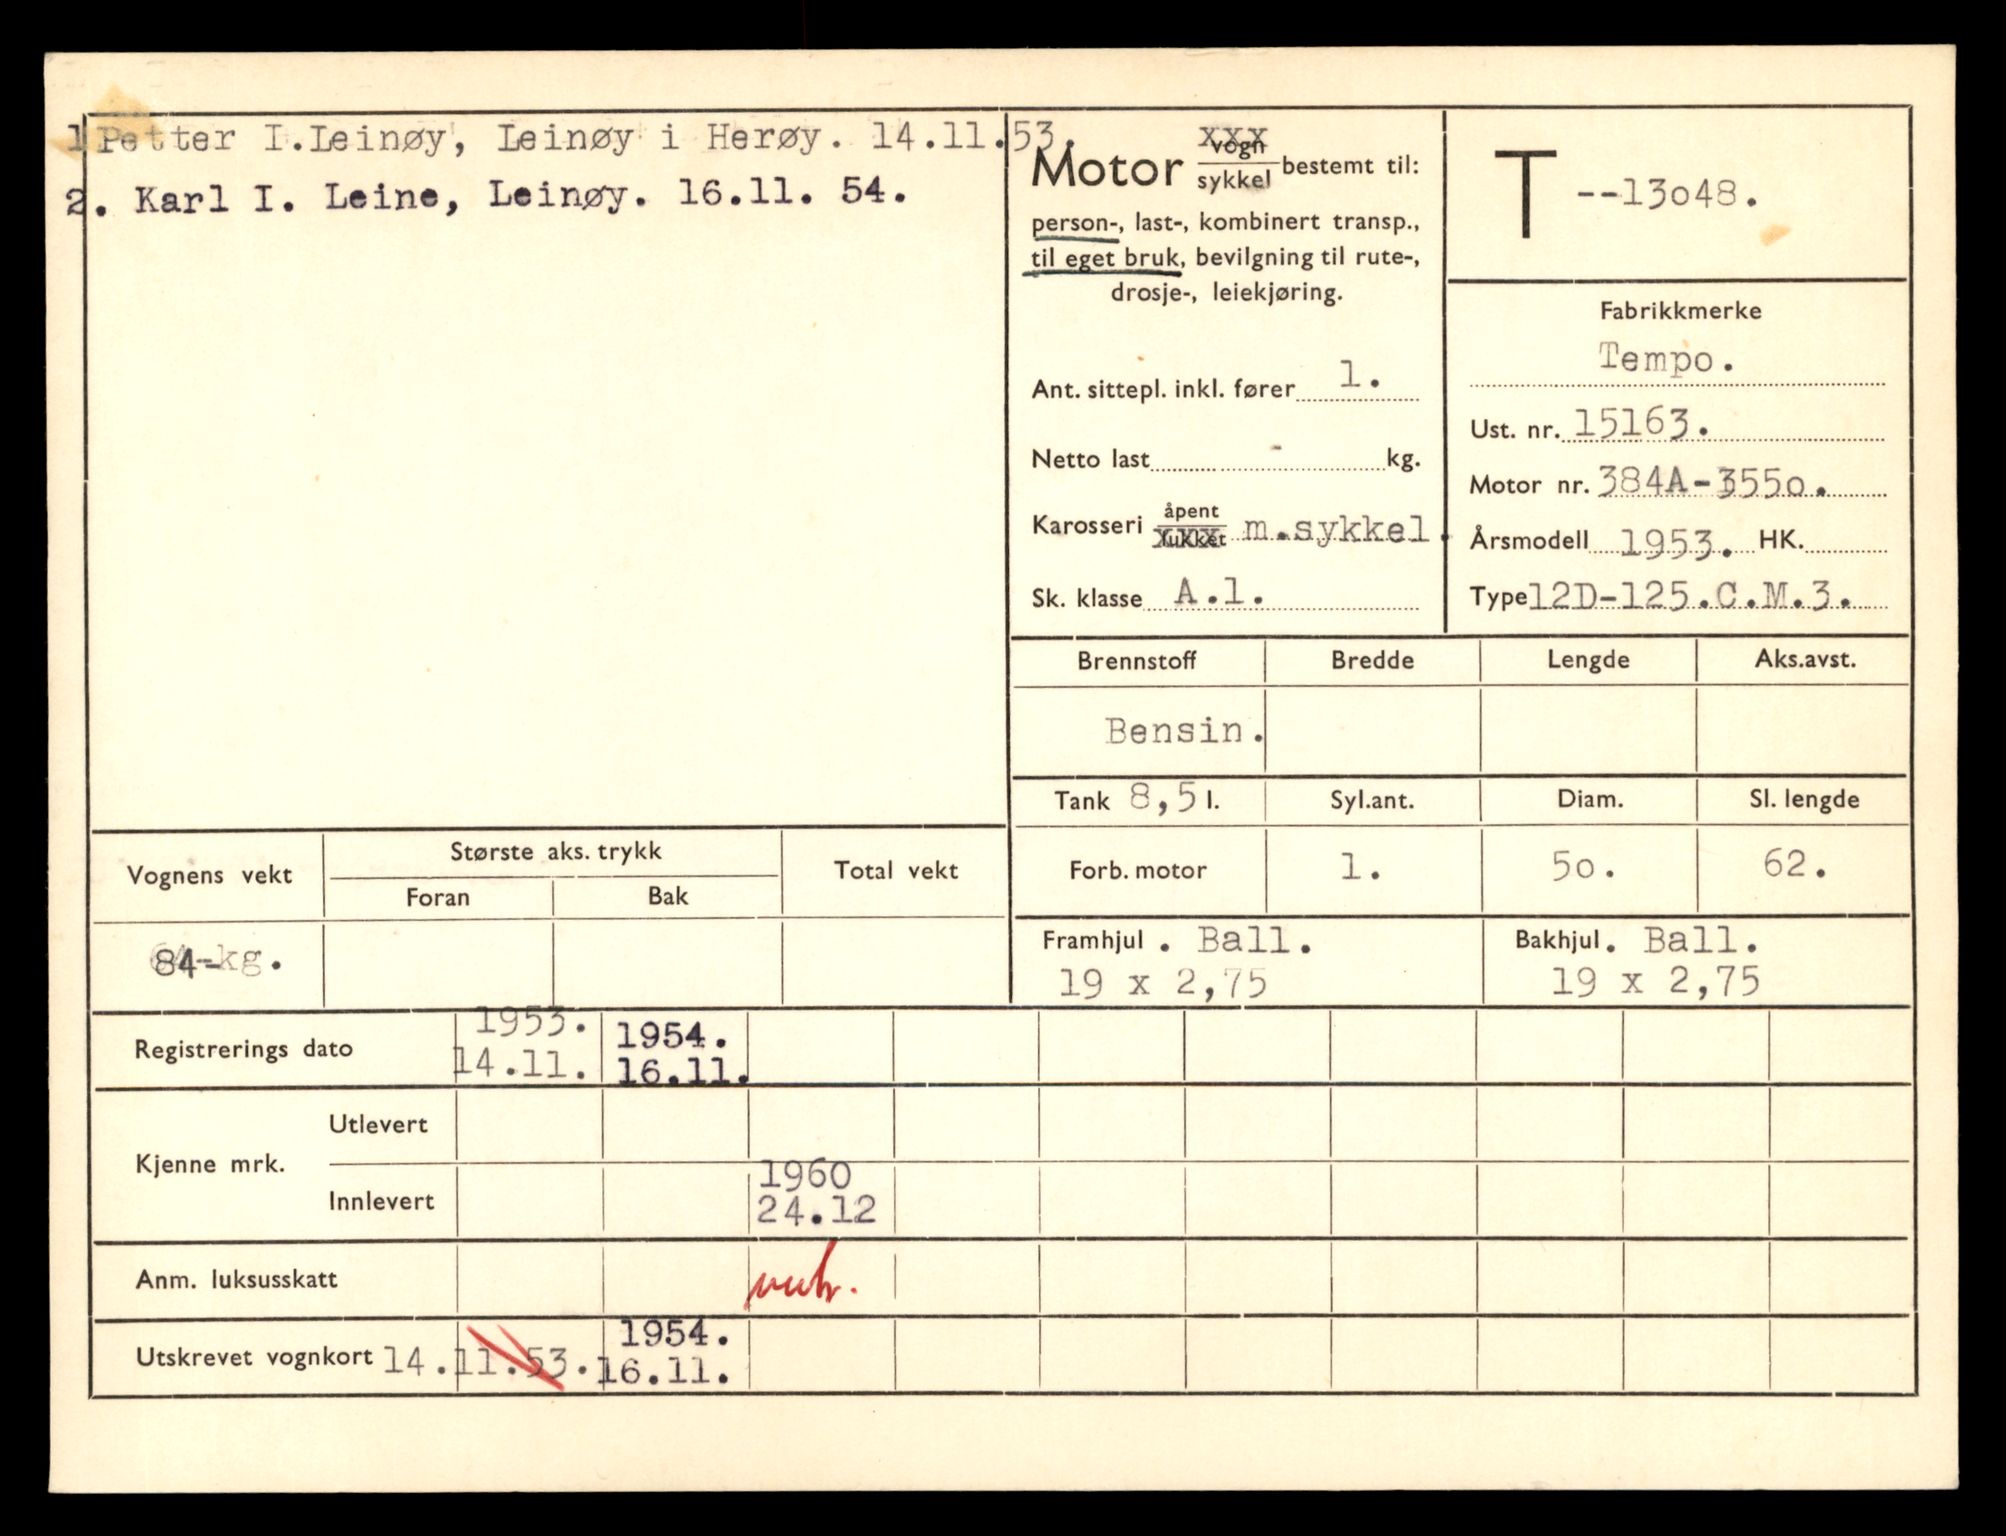 1 Petter I.Leinøy, Leinøy i Herøy. 14.11.53.
2. Karl I. Leine, Leinøy. 16.11. 54.
Motor vogn sykkel bestemt til:
person-, last-, kombinert transp.,
til eget bruk, bevilgning til rute-,
drosje-, leiekjøring.
Ant. sittepl. inkl. fører 1.
Netto last - kg.
Karosseri åpent lukket m.sykkel.
Sk. klasse A.1.
T --13o48.
Fabrikkmerke
Tempo.
Ust. nr. 15163.
Motor nr. 384A-355o.
Årsmodell 1953. HK.
Type 12D-125.C.M.3.
Brennstoff Bredde Lengde Aks.avst.
Bensin.
Tank 8,5 l. Syl.ant. Diam. Sl. lengde
Forb. motor 1. 5o. 62.
Framhjul . Ball. Bakhjul. Ball.
19 x 2,75 19 x 2,75
Vognens vekt Største aks. trykk Total vekt
Foran Bak
84-kg.
Registrerings dato 1953. 1954.
14.11. 16.11.
Kjenne mrk. Utlevert
Innlevert 1960
24.12
Anm. luksusskatt
Utskrevet vognkort 14.11.53. 1954.
16.11.